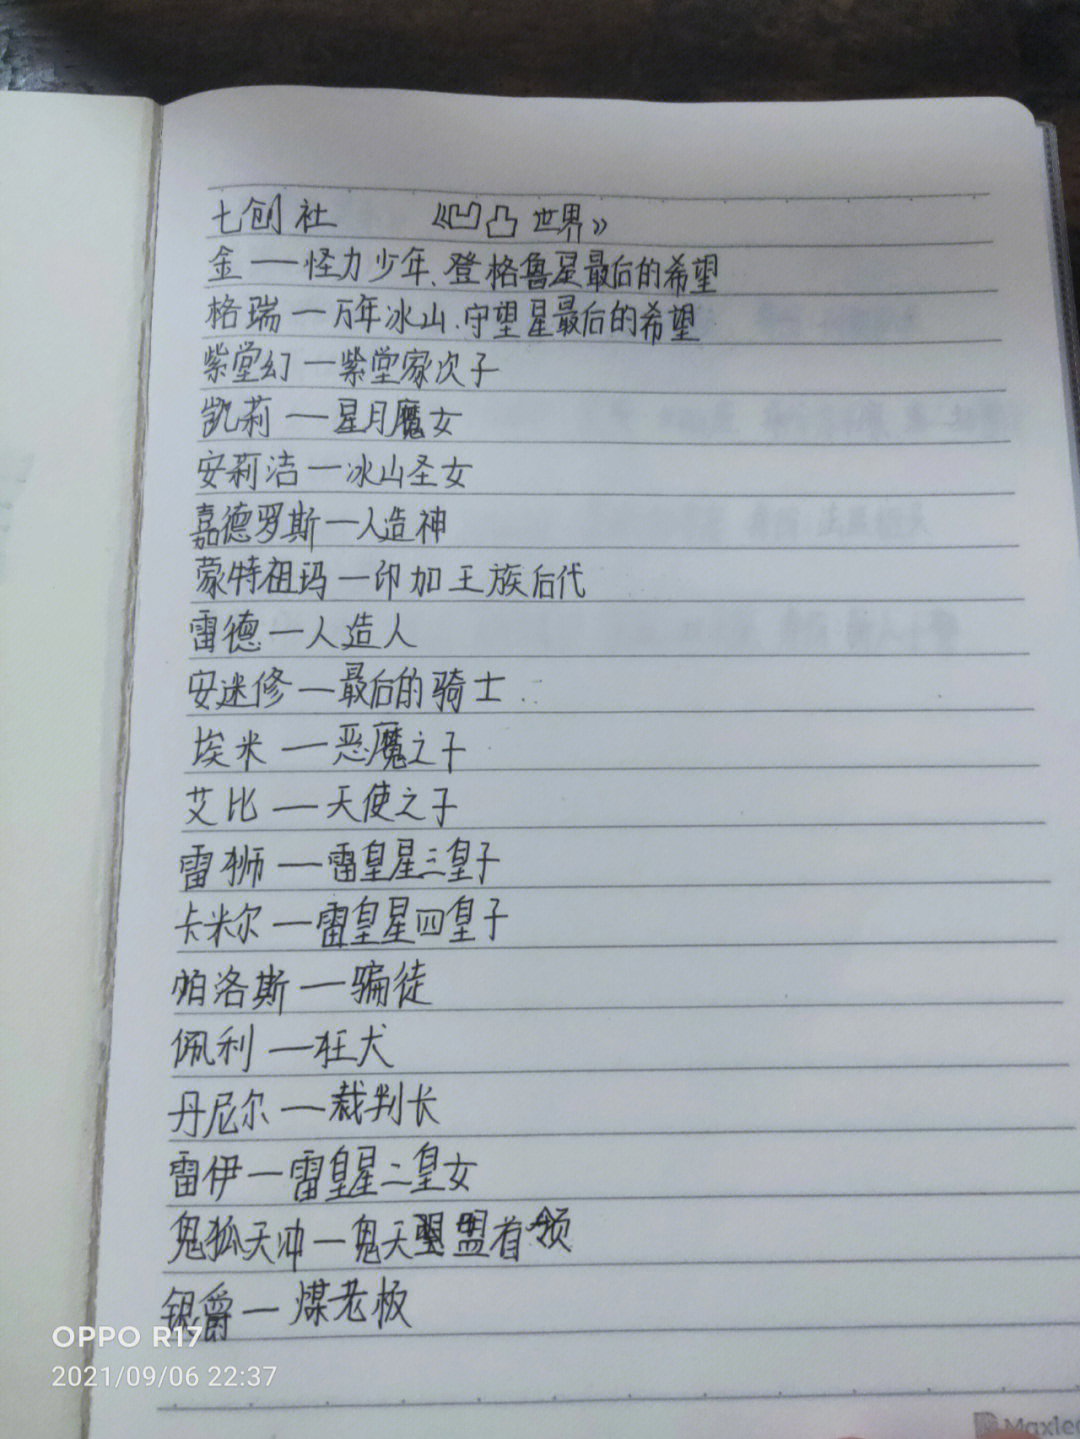 七创社 《凹凸世界》
金——怪力少年、登格鲁星最后的希望
格瑞—万年冰山、守望星最后的希望
紫堂幻—紫堂家次子
凯莉——星月魔女
安莉洁—冰山圣女
嘉德罗斯—人造神
蒙特祖玛—印加王族后代
雷德—人造人
安迷修—最后的骑士
埃米——恶魔之子
艾比——天使之子
雷狮——雷皇星三皇子
卡米尔—雷皇星四皇子
帕洛斯—骗徒
佩利——狂犬
丹尼尔——裁判长
雷伊—雷皇星二皇女
鬼狐天冲—鬼天盟首领
银爵—煤老板
OPPO R17
2021/09/06 22:37